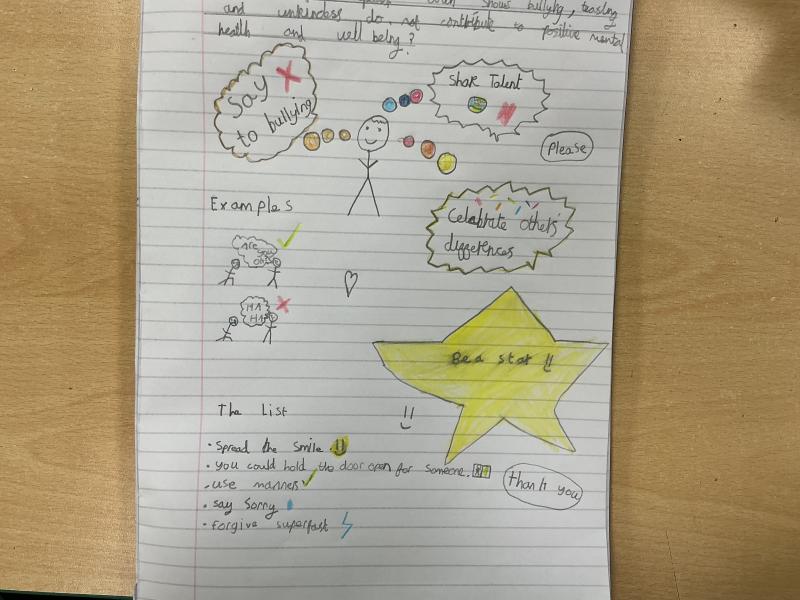 shows bullying, teasing
and unkindess do not contribute to positive mental
health and well being?
Say
to bullying
Shar Talent
Please
Examples
Celabrate others'
differences
Are
you
ok?
HA
HA
Be a star !!
The List
• Spread the smile.
• you could hold the door open for someone.
• use manners
• say Sorry
• forgive superfast
thank you